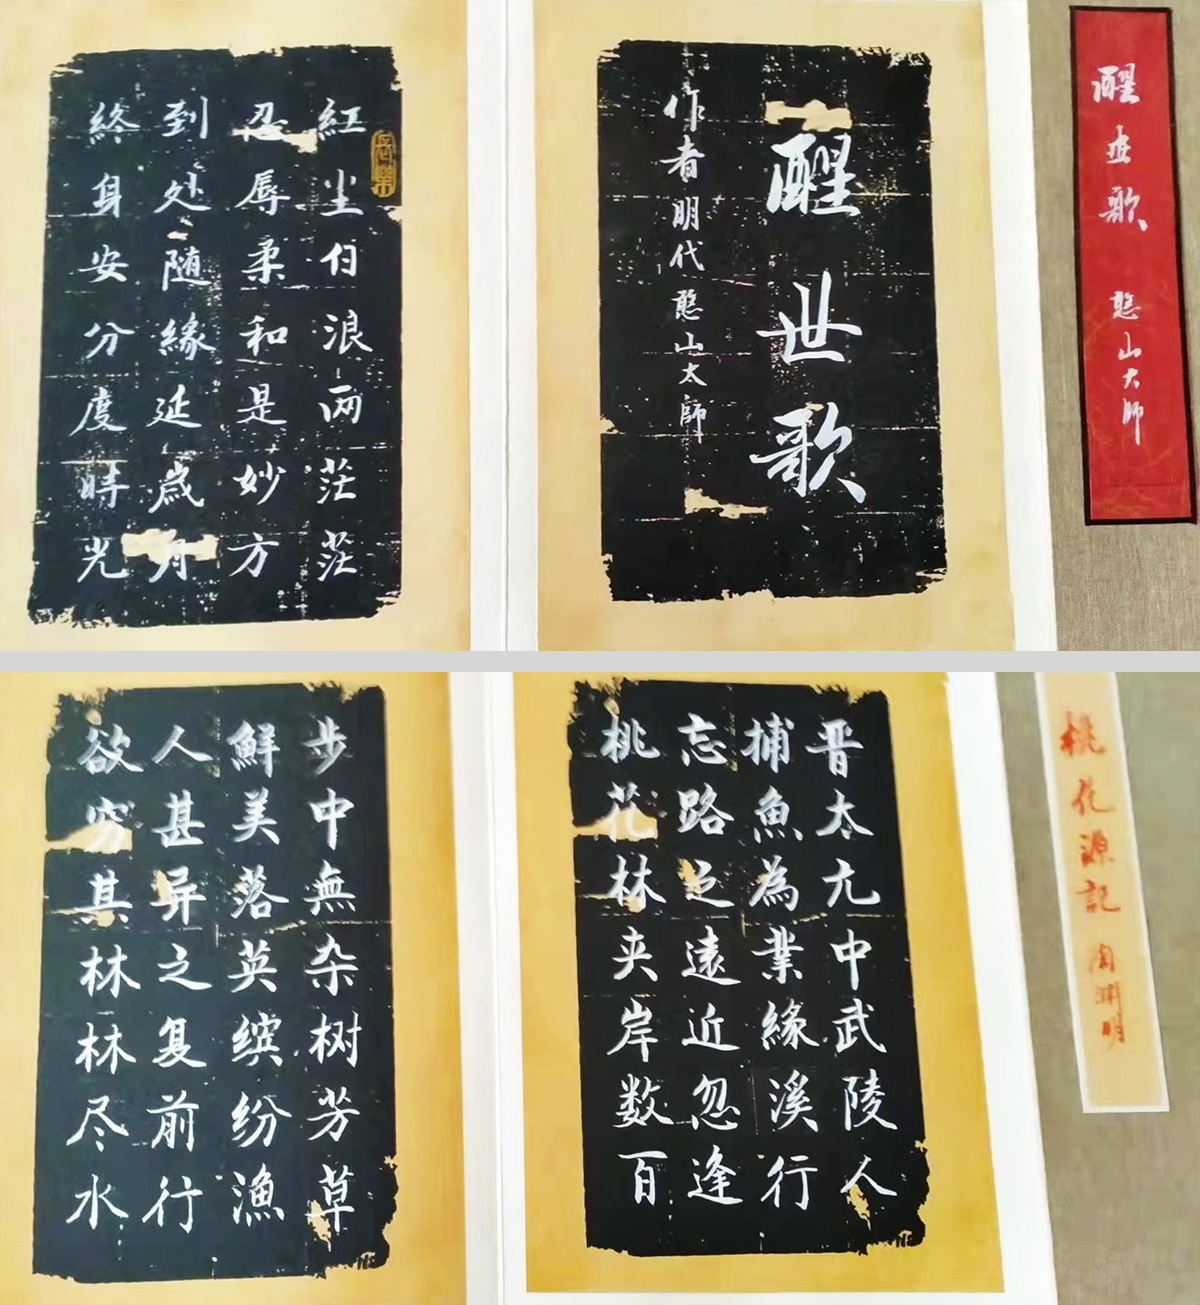 醒世歌 憨山大師
醒世歌
作者明代憨山太師
紅尘白浪两茫茫
忍辱柔和是妙方
到处随緣延歳月
終身安分度時光
桃花源記 陶渊明
晋太元中武陵人
捕魚為業緣溪行
忘路之遠近忽逢
桃花林夹岸数百
步中無杂树芳草
鮮美落英缤纷漁
人甚异之复前行
欲穷其林林尽水